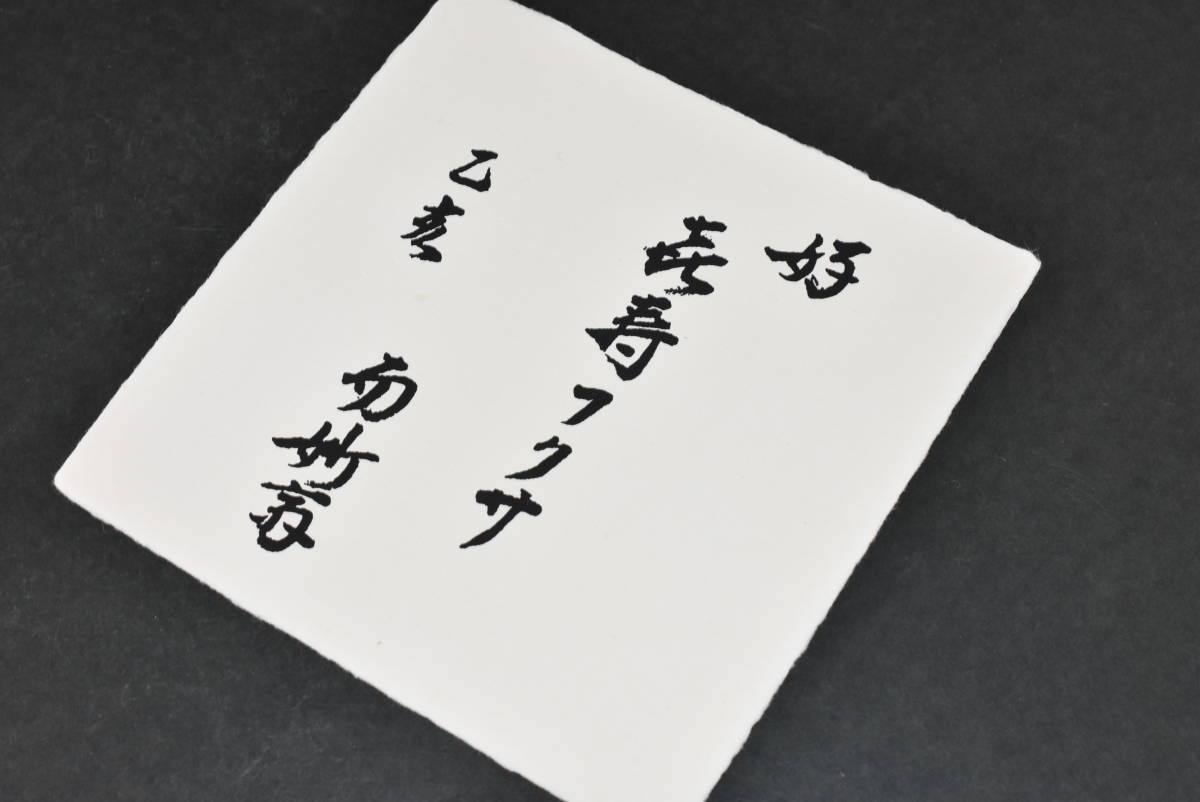 好
喜寿フクサ
乙亥 勿妙斎